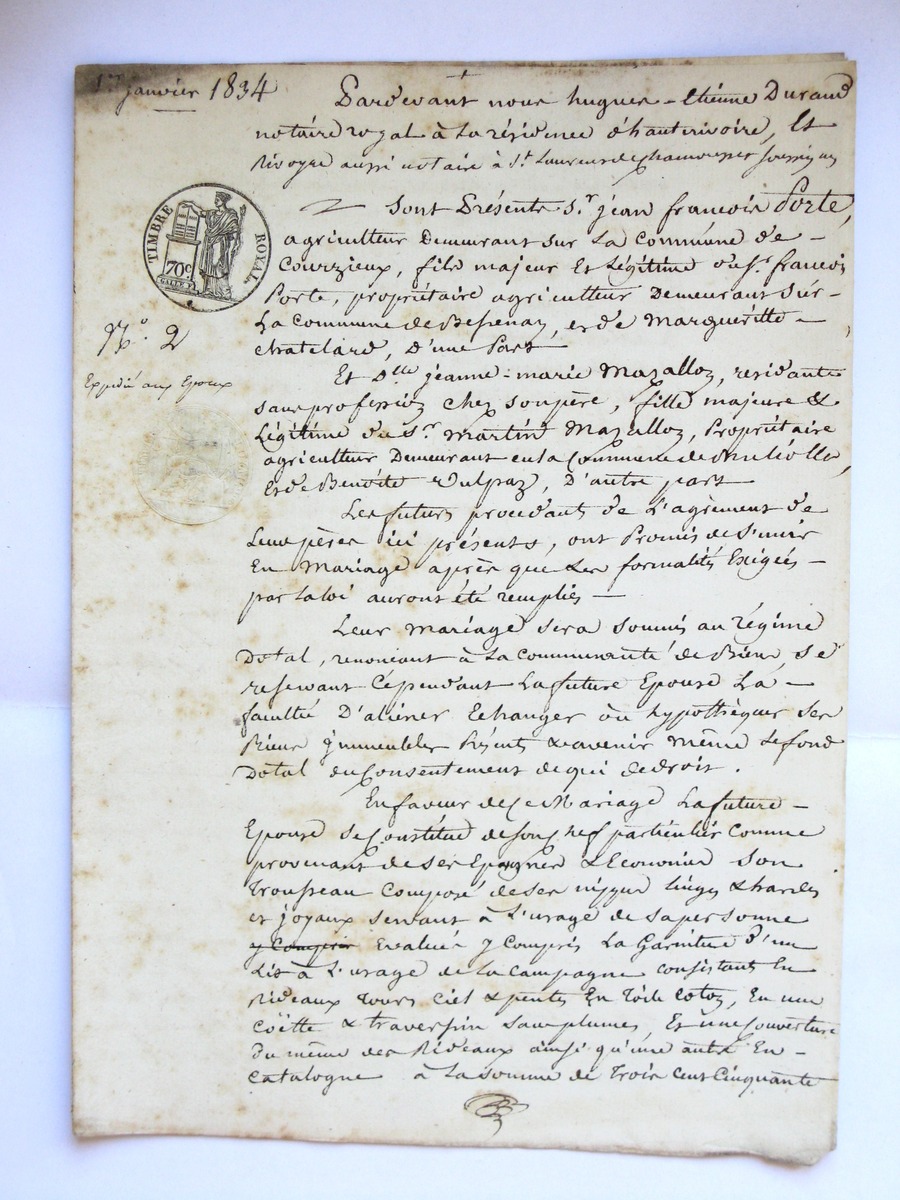 1er janvier 1834
Pardevant nous hugues-Etienne Durand
notaire royal à La résidence d'hauterivoire, Et
Rivoyre aussi notaire à St Laurent de chamousset soussignés
TIMBRE ROYAL
70c
Sont Présents S.r jean francois Porte,
agriculteur Demeurant sur La Commune de
Courzieux, fils majeur Et Légitime du Sr francois
Porte, propriétaire agriculteur Demeurant sur
La Commune de Bessenay, et de Marguéritte
chatelard, D'une Part
N.o 2
Expédié aux Epoux
Et Dlle jeanne-marie Mazalloz, residante
sans profession chez son père, fille majeure &
Légitime du S.r Martin Mazalloz, Propriétaire
agriculteur Demeurant en la Commune de
Et de Benoite Vulpaz, D'autre part
Les futurs procédants de L'agrèment de
Leurs pères ici présents, ont Promis de S'unir
En Mariage après que Les formalités Exigées
par La loi auront été remplies
Leur Mariage sera soumis au régime
Dotal, renoncant à La Communauté de Biens se
reservant Cépendant La future Epouse La
faculté D'aliéner Echanger ou hypothèquer ses
Biens jmmeubles Présents & avenir même Le fond
Dotal du Consentement de qui de droit.
En faveur de Ce Mariage La future
Epouse se Constitue de son chef particulier Comme
provenant de ses Epargnes & Economies son
Trousseau Composé de ses nippes linges & hardes
et joyaux servant à L'usage de sa personne
y Compris Evalués y Compris La Garniture d'un
Lit à L'usage de La Campagne consistant En
Rideaux Tours Ciel & pentes En Toile Coton, En une
Coëtte & traversin sans plumes, Et une Couverture
du même des Rideaux ainsi qu'une autre En
Catalogne à La somme de Trois Cent Cinquante